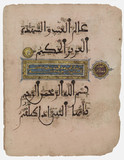 علم الغيب والشهدة
العزيز الحكيم
بسم الله الرحمن الرحيم
يايها النبي اذا طلقتم